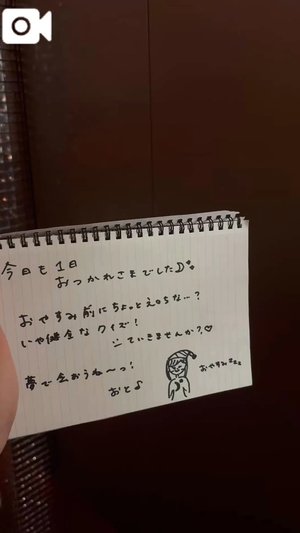 今日も1日
おつかれさまでした
おやすみ前にちょっとえ○ちな…?
いや健全なクイズ!
していきませんか?♡
夢で会おうね〜っ!
おと♪
おやすみzzz